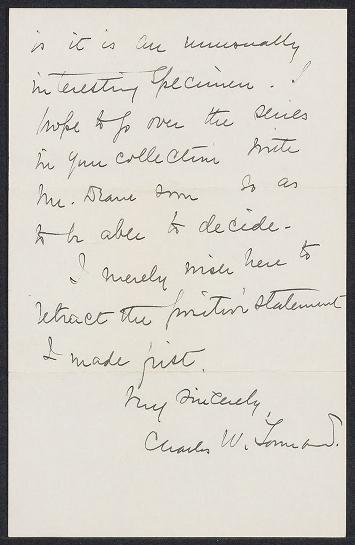 is it is an unusually
interesting specimen. I
hope to go over the series
in your collection with
Mr. Deane soon so as
to be able to decide.
I merely wish here to
retract the positive statement
I made first.
Very sincerely,
Charles W. Townsend.